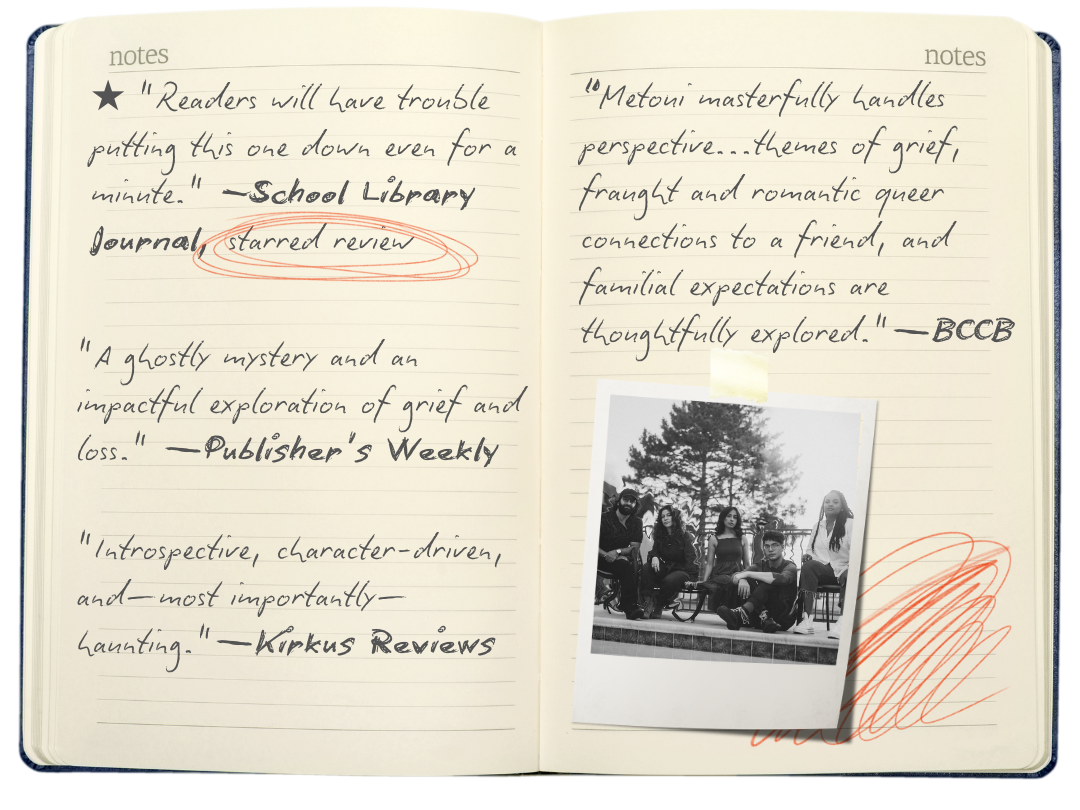 notes
★ "Readers will have trouble
putting this one down even for a
minute." —School Library
Journal, starred review
"A ghostly mystery and an
impactful exploration of grief and
loss." —Publisher's Weekly
"Introspective, character-driven,
and—most importantly—
haunting." —Kirkus Reviews
notes
"Metoui masterfully handles
perspective...themes of grief,
fraught and romantic queer
connections to a friend, and
familial expectations are
thoughtfully explored." —BCCB